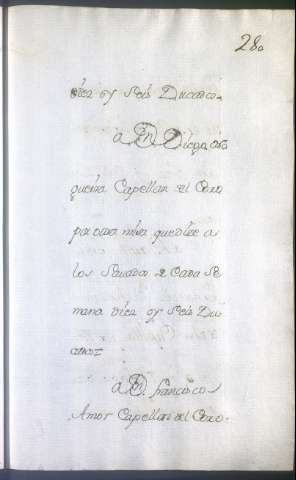 28.
diez y seis Ducados
a Dn Diego
Capellan del Coro
por otra misa que dice a
los Sabados de cada Se
mana diez y seis Du
cados
a D. francisco
Amor Capellan del Coro.